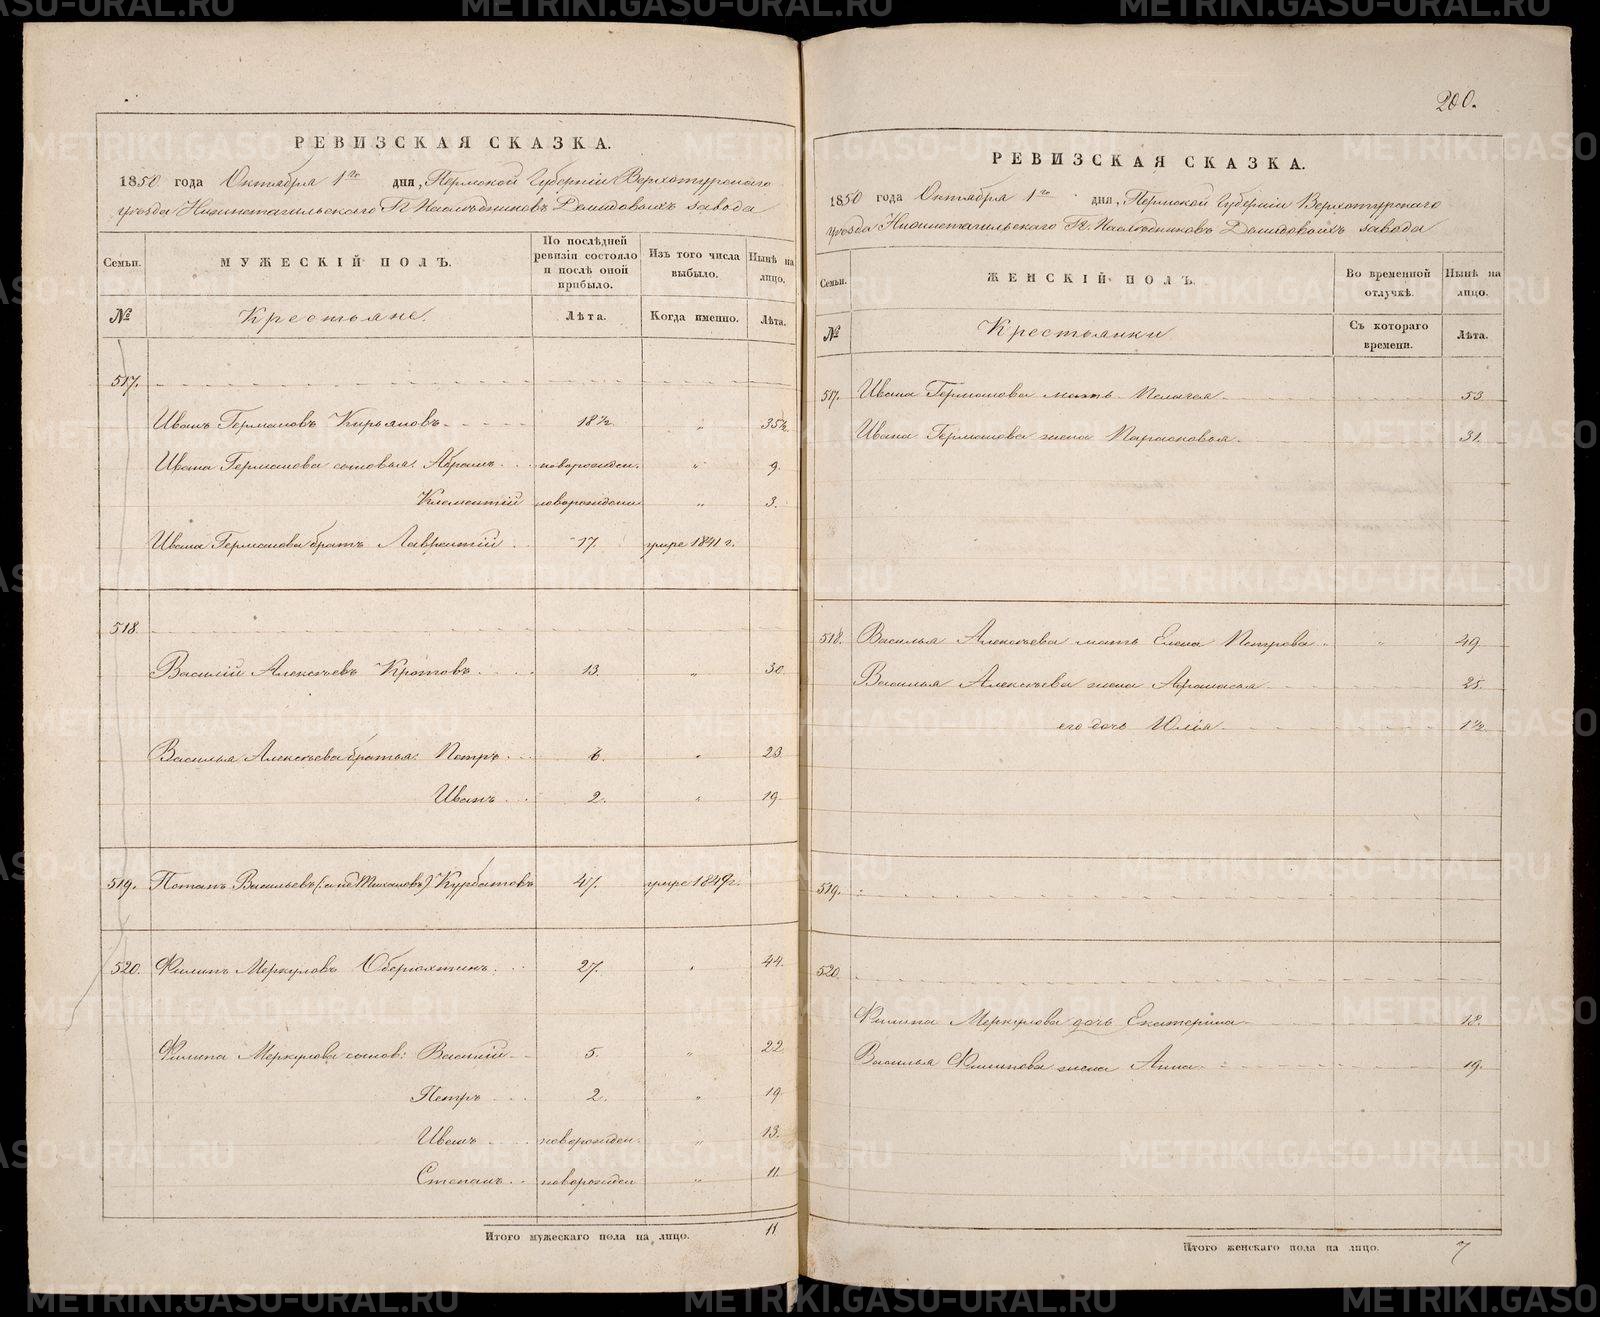 200.
РЕВИЗСКАЯ СКАЗКА.
1850 года Октября 1го дня, Пермской Губернiи Верхотурскаго
уезда Нижнетагильскаго Гг. Наследниковъ Демидовыхъ завода
Семьи.
МУЖЕСКIЙ ПОЛЪ.
По послѣдней ревизiи состояло и послѣ оной прибыло.
Изъ того числа выбыло.
Нынѣ на лицо.
№
Крестьяне.
Лѣта.
Когда именно.
Лѣта.
517.
Иванъ Германовъ Кирьяновъ 18½ " 35½
Ивана Германова сыновья: Абрамъ новорожден. " 9.
Климентiй новорожденн " 3.
Ивана Германова братъ Лаврентiй 17. умре 1841 г.
518
Василiй Алексѣевъ Кротовъ 13. " 30
Василья Алексѣева братья: Петръ 6. " 23
Иванъ 2. " 19
519. Потапъ Васильевъ (: а не Михаловъ) Курбатовъ 47. умре 1849 г.
520. Филипъ Меркуловъ Оберюхтинъ. 27. " 44.
Филипа Меркулова сынов: Василiй 5. " 22
Петръ 2. " 19
Иванъ новорожден. " 13.
Степанъ новорожден " 11.
Итого мужескаго пола на лицо. 11
РЕВИЗСКАЯ СКАЗКА.
1850 года Октября 1го дня, Пермской Губернiи Верхотурскаго
уезда Нижнетагильскаго Гг. Наследниковъ Демидовыхъ завода
Семьи.
ЖЕНСКIЙ ПОЛЪ.
Во временной отлучкѣ.
Нынѣ на лицо.
№
Крестьянки
Съ котораго времени.
Лѣта.
517. Ивана Германова мать Пелагея 53
Ивана Германова жена Парасковья 31.
518. Василья Алексѣева мать Елена Петрова " 49
Василья Алексѣева жена Афанасья 25.
его дочь Юлiя 1½.
519.
520.
Филипа Меркулова дочь Екатерина 12.
Василья Филипова жена Анна 19.
Итого женскаго пола на лицо. 7
METRIKI.GASO-URAL.RU